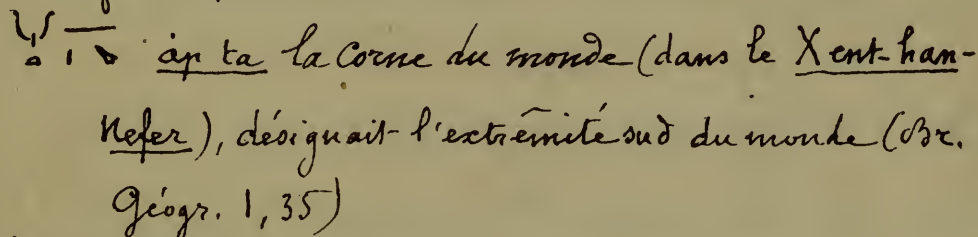 āp ta la corne du monde (dans le Xent-han-
Nefer), désignait l'extrêmité sud du monde (Br.
Géogr. 1, 35)